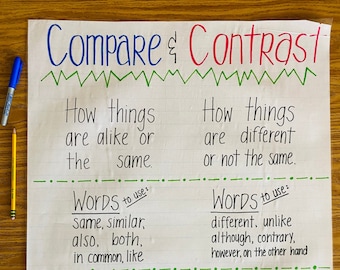 Compare & Contrast
How things
are alike or
the same.
How things
are different
or not the same.
Words to use:
same, similar,
also, both,
in common, like
Words to use:
different, unlike
although, contrary,
however, on the other hand